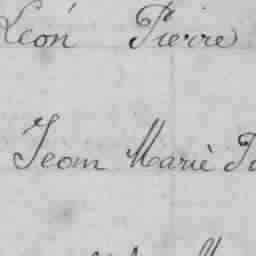 Léon Pierre
Jean Marie